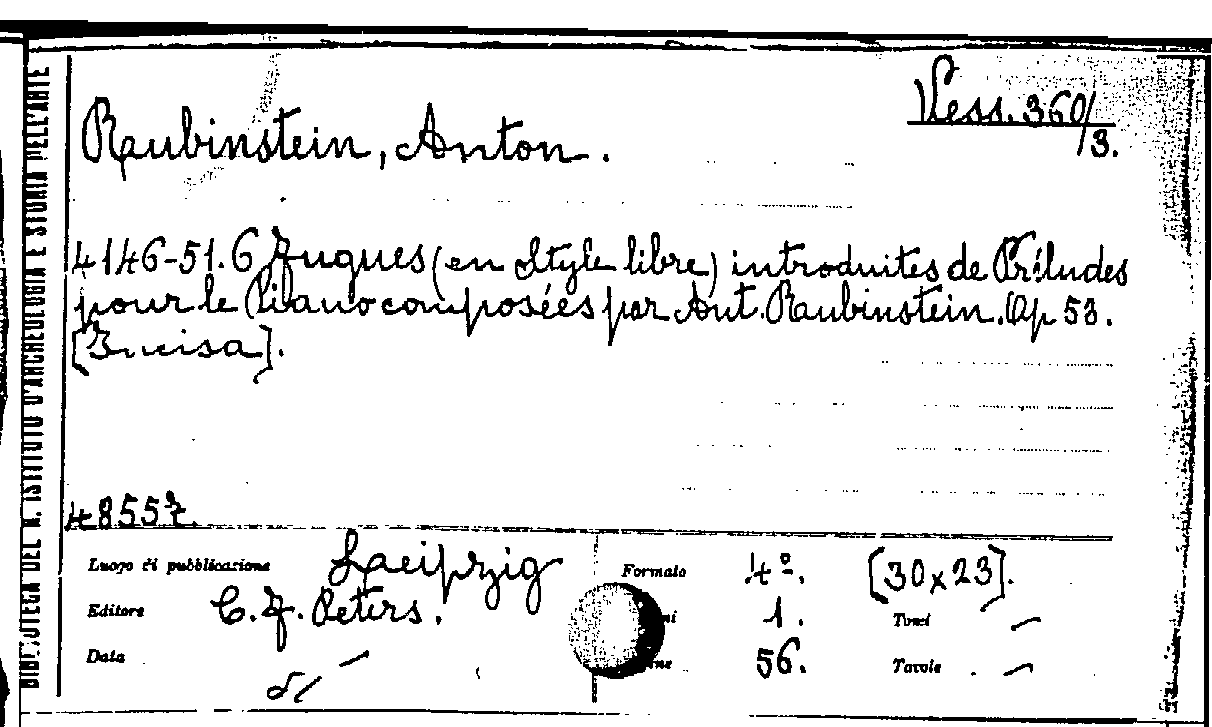 BIBLIOTECA DEL R. ISTITUTO D'ARCHEOLOGIA E STORIA DELL'ARTE
Vess. 360/3.
Rubinstein, Anton.
4146-51. 6 Fugues (en Style libre) introduites de Préludes
pour le Piano composées par Ant. Rubinstein. Op 53.
[Incisa].
48557.
Luogo di pubblicazione Leipzig
Formato 4º. [30x23].
Editore C. F. Peters.
1. Tomi –
Data –
56. Tavole –